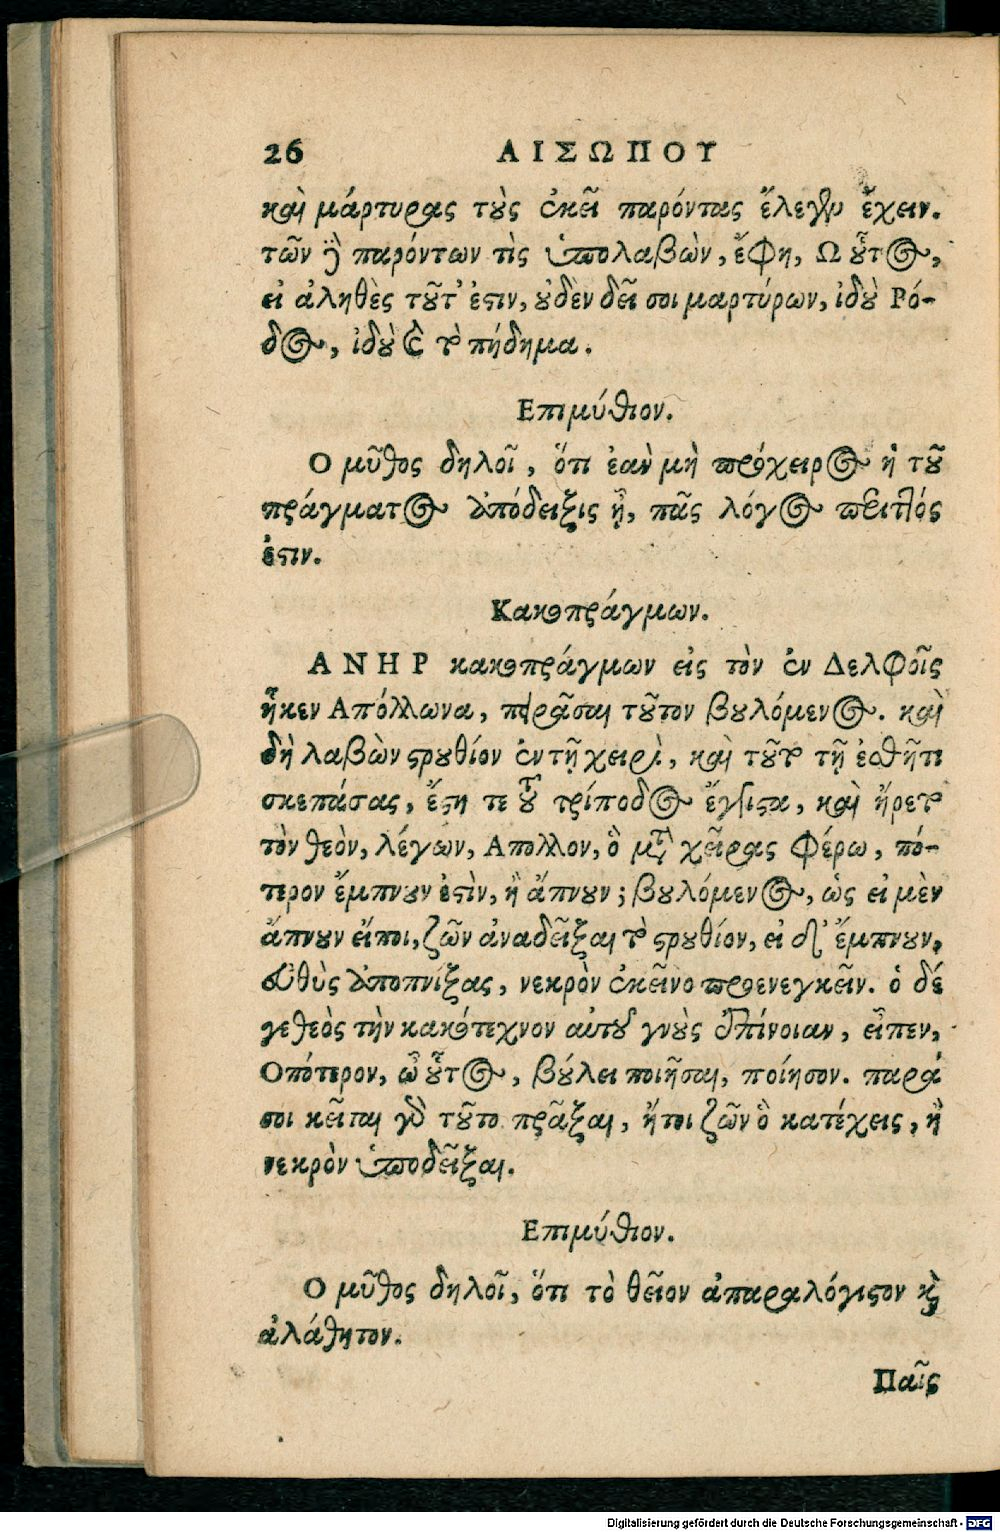 26 ΑΙΣΩΠΟΥ
καὶ μάρτυρας τοὺς ἐκεῖ παρόντας ἔλεγεν ἔχειν.
τῶν δὲ παρόντων τὶς ὑπολαβὼν, ἔφη, Ω οὗτος,
εἰ ἀληθὲς τοῦτ' ἐστιν, οὐδὲν δεῖ σοι μαρτύρων, ἰδοὺ Ρό-
δος, ἰδοὺ καὶ τὸ πήδημα.
Επιμύθιον.
Ο μῦθος δηλοῖ, ὅτι ἐὰν μὴ πρόχειρος ἡ τοῦ
πράγματος ἀπόδειξις ᾖ, πᾶς λόγος περιττός
ἐστιν.
Κακοπράγμων.
ΑΝΗΡ κακοπράγμων εἰς τὸν ἐν Δελφοῖς
ἧκεν Απόλλωνα, πειρᾶσαι τοῦτον βουλόμενος. καὶ
δὴ λαβὼν στρουθίον ἐν τῇ χειρὶ, καὶ τοῦτο τῇ ἐσθῆτι
σκεπάσας, ἔστη τε τοῦ τρίποδος ἔγγιστα, καὶ ἤρετο
τὸν θεὸν, λέγων, Απολλον, ὃ μετὰ χεῖρας φέρω, πό-
τερον ἔμπνουν ἐστὶν, ἢ ἄπνουν; βουλόμενος, ὡς εἰ μὲν
ἄπνουν εἴποι, ζῶν ἀναδεῖξαι τὸ στρουθίον, εἰ δ' ἔμπνουν,
εὐθὺς ἀποπνίξας, νεκρὸν ἐκεῖνο προενεγκεῖν. ὁ δέ
γε θεὸς τὴν κακότεχνον αὐτοῦ γνοὺς ἐπίνοιαν, εἶπεν,
Οπότερον, ὦ οὗτος, βούλει ποιῆσαι, ποίησον. παρά
σοι κεῖται γὰρ τοῦτο πρᾶξαι, ἤτοι ζῶν ὃ κατέχεις, ἢ
νεκρὸν ὑποδεῖξαι.
Επιμύθιον.
Ο μῦθος δηλοῖ, ὅτι τὸ θεῖον ἀπαραλόγιστον καὶ
ἀλάθητον.
Παῖς
Digitalisierung gefördert durch die Deutsche Forschungsgemeinschaft - DFG